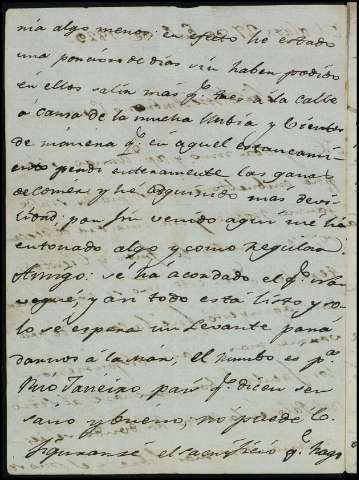 nia algo menor: en efecto he estado
una porcion de dias sin haber podido
en ellos salir mas q.e  a la calle
á causa de la mucha llubia y bientos
de manera q.e en aquel estancami
ento perdi enteramente las ganas
de comer, y he adquirido mas devi
lidad: por fin venido aqui me ha
entonado algo y como regular.
Amigo: se há acordado el q.e na
vegue, y asi todo está listo y so
lo se espera un Levante para
darnos a la már, el rumbo es p.a
Rio Janeiro, par q.e dicen ser
sano y bueno, no puede V.
figurarse el sacrificio q.e hago